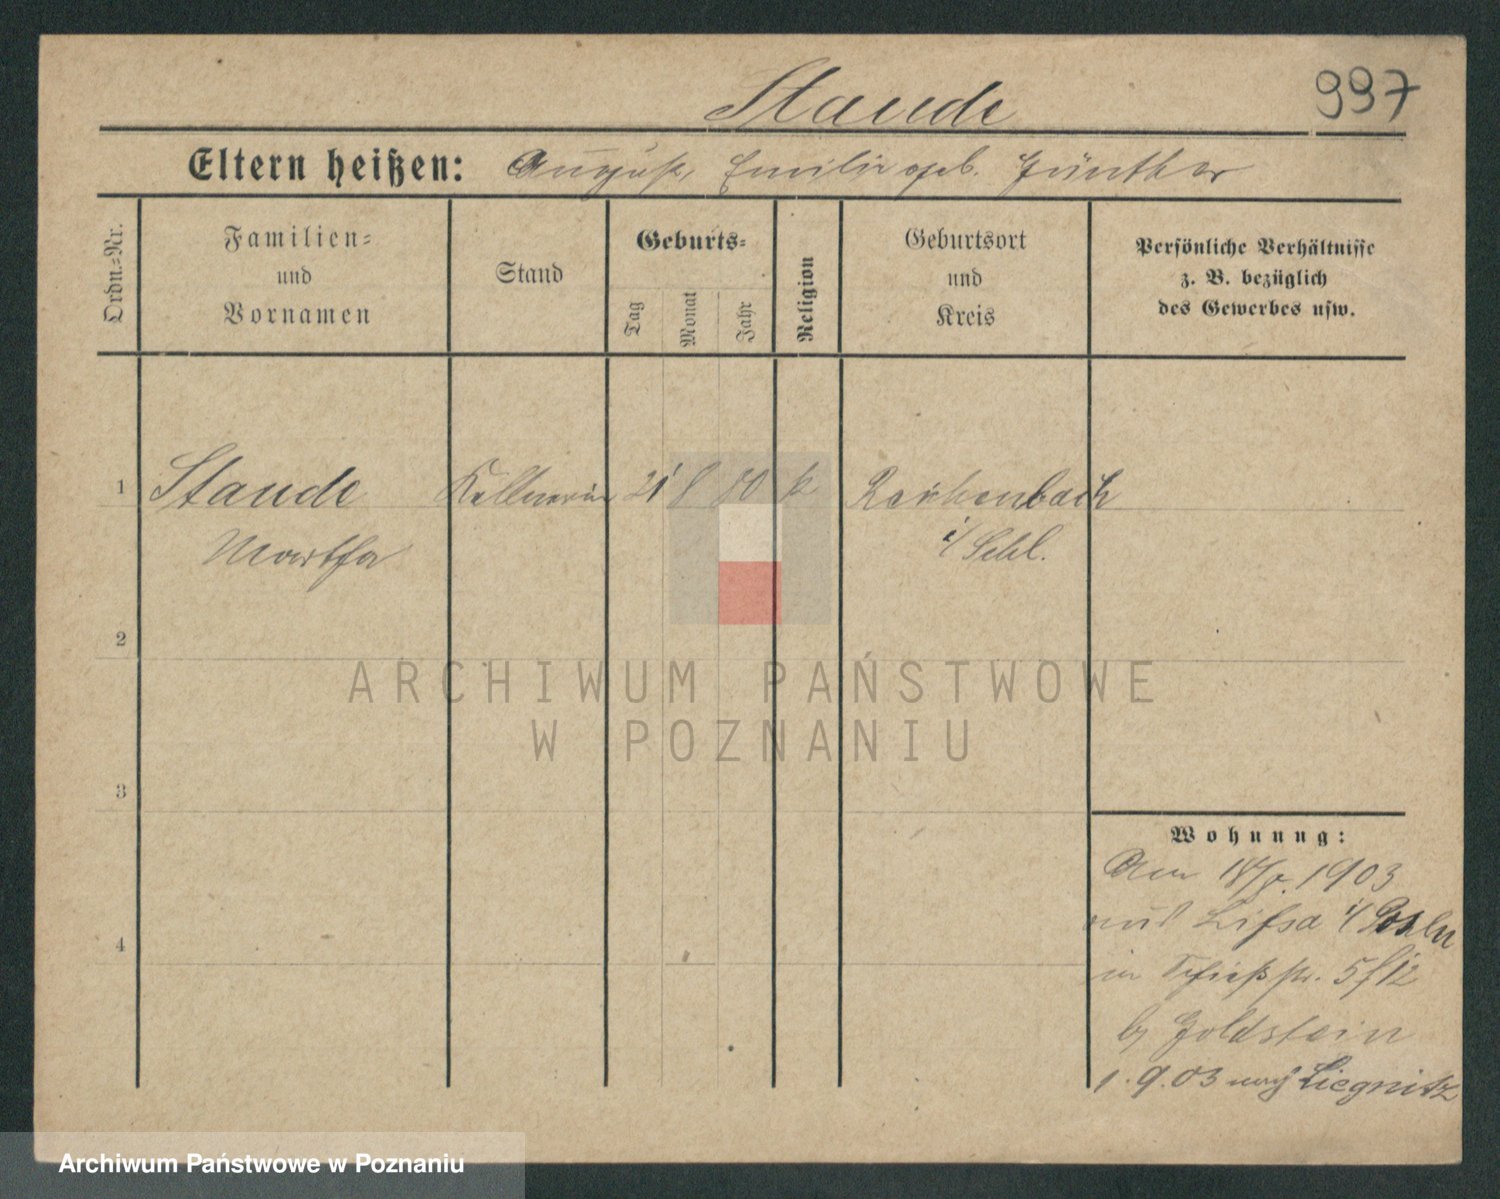 Staude 997
Eltern heißen: August, Emilie geb. Günther
Ordn.-Nr.
Familien-
und
Vornamen
Stand
Geburts-
Tag
Monat
Jahr
Religion
Geburtsort
und
Kreis
Persönliche Verhältnisse
z. B. bezüglich
des Gewerbes usw.
1 Staude Kellnerin 21 8 80 k Reichenbach
Martha i/Schl.
2
ARCHIWUM PAŃSTWOWE
W POZNANIU
3
4
Wohnung:
Am 1903
aus Lissa i/
in Schießstr. 5
b/ Goldstein
1.9.03 nach Liegnitz
Archiwum Państwowe w Poznaniu